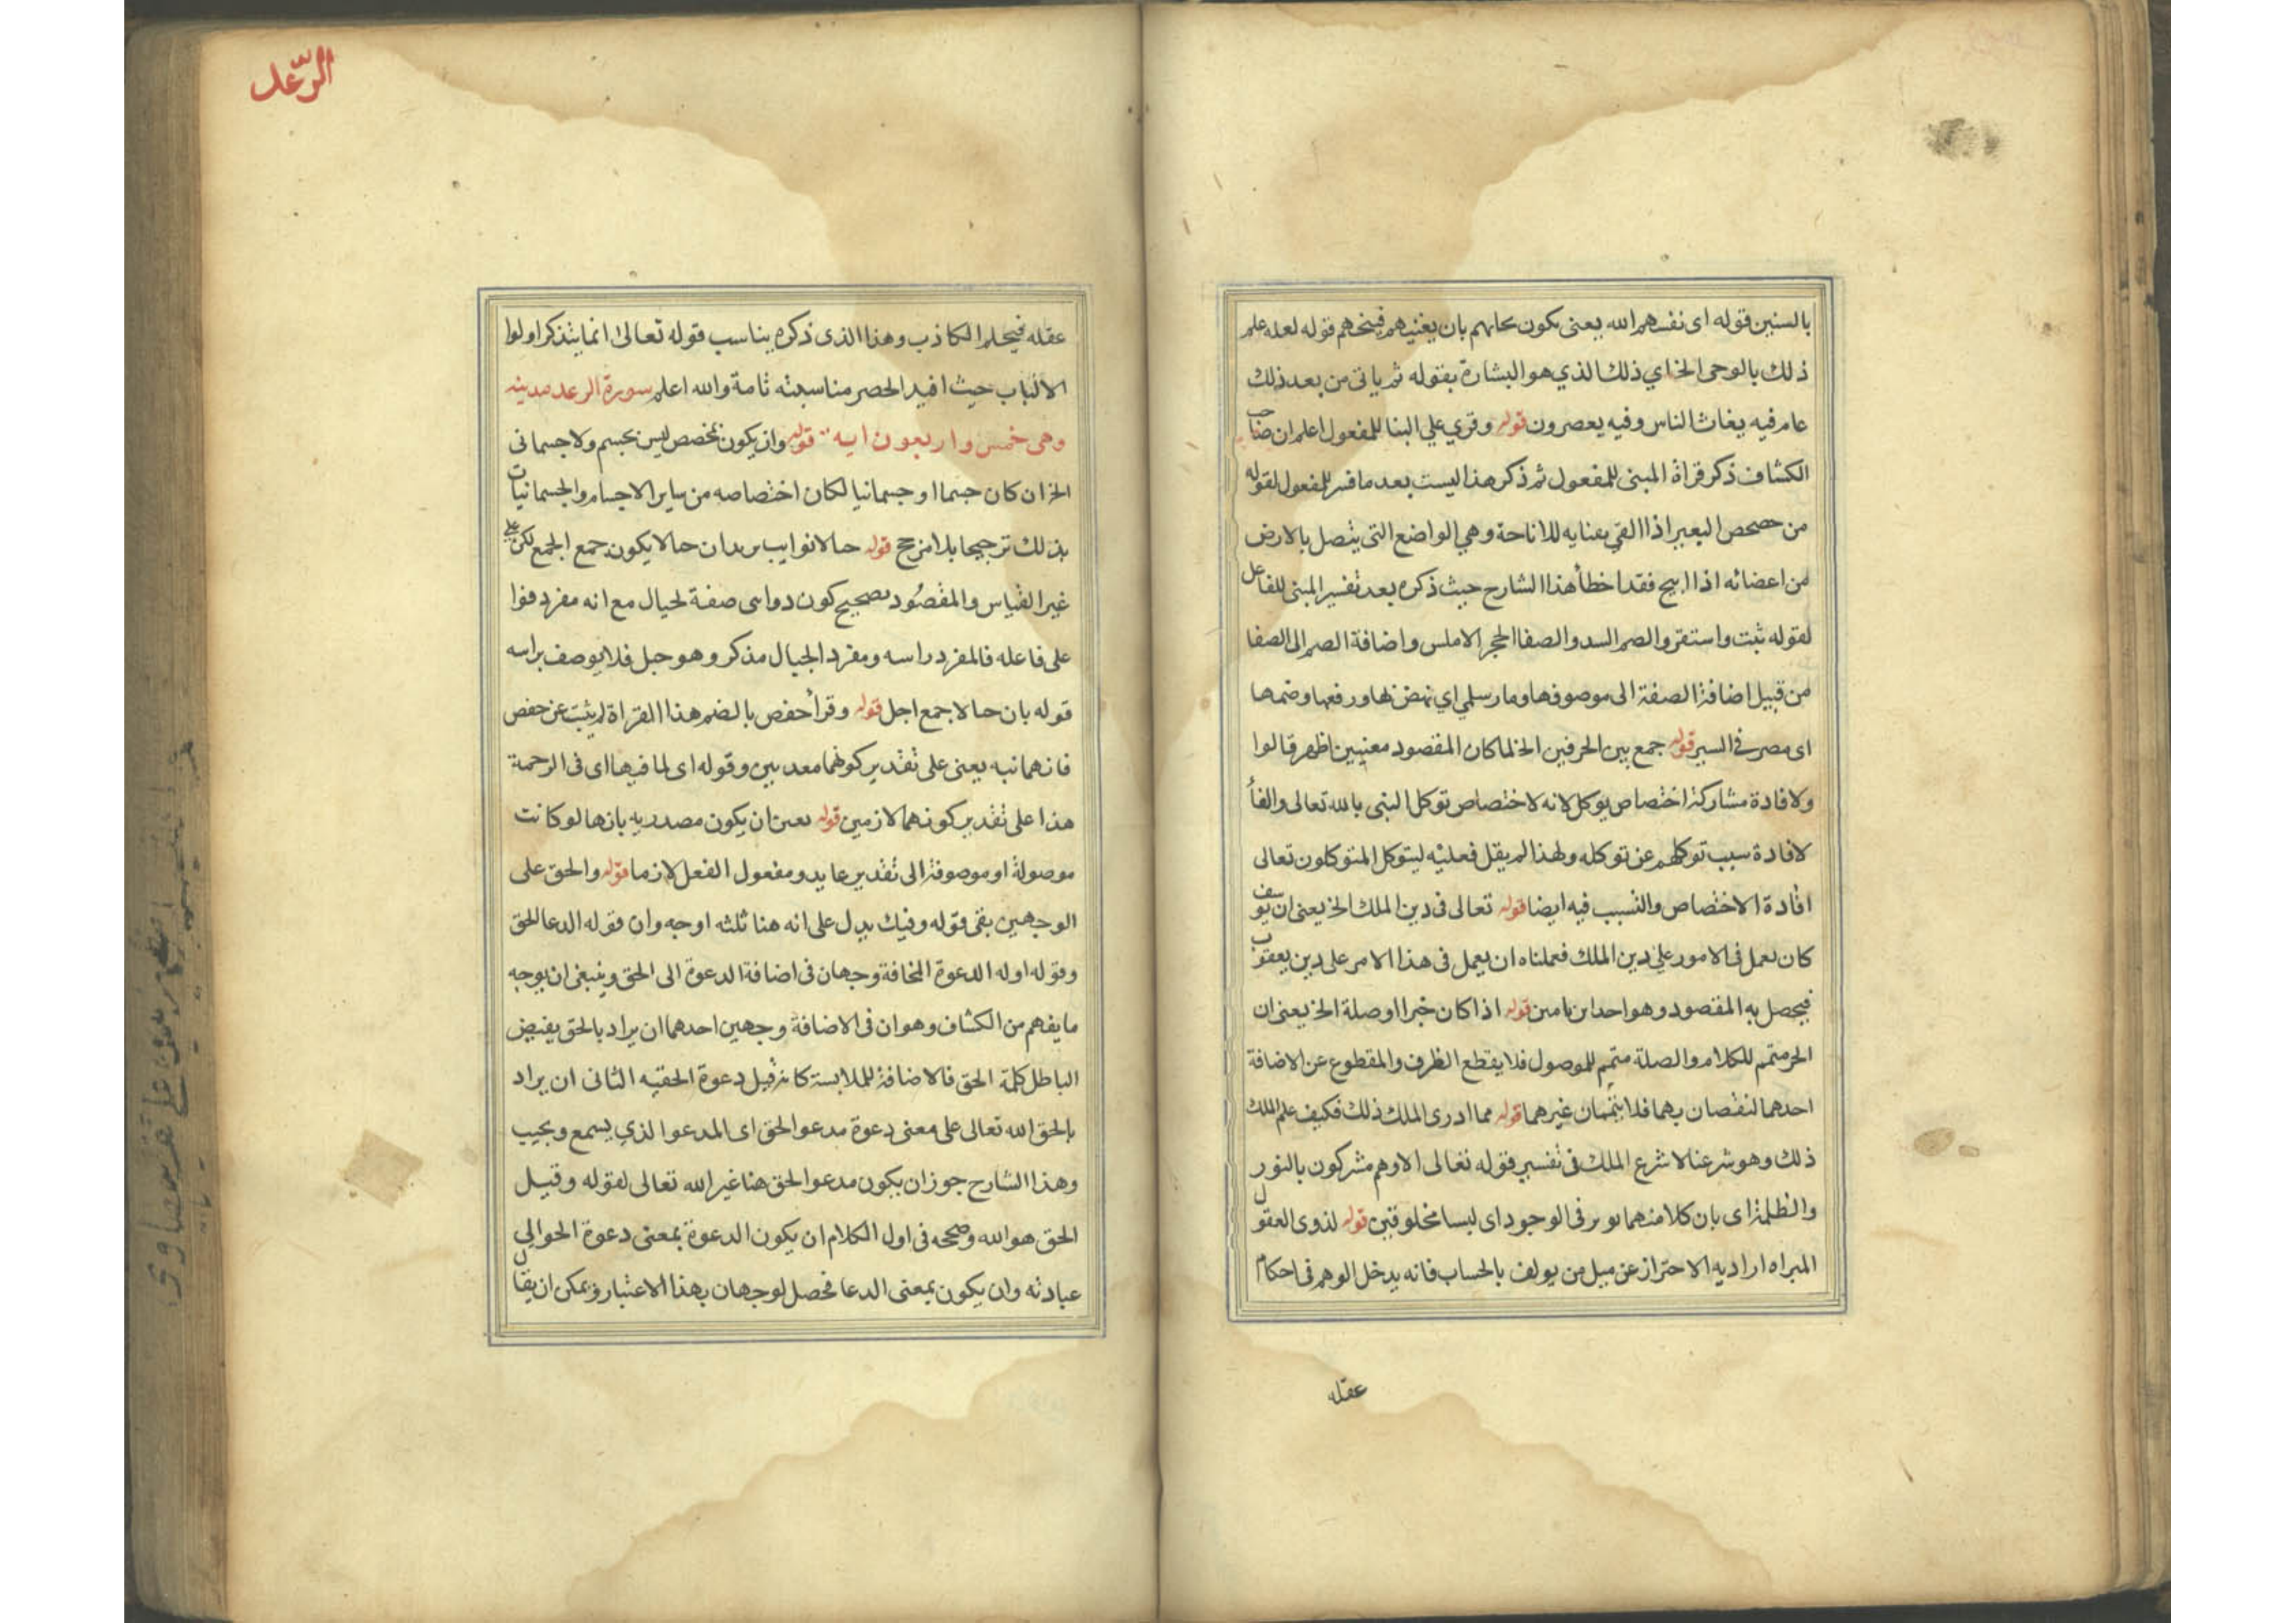 بالسنين قوله اى نفسهم الله يعنى يكون بان يغيثهم فينجيهم قوله لعله علم
ذلك بالوحى الخ اي ذلك الذي هو البشارة بقوله ثم ياتى من بعد ذلك
عام فيه يغاث الناس وفيه يعصرون قوله وقري علي البنا للمفعول اعلم ان صاحب
الكشاف ذكر قراة المبنى للمفعول ثم ذكر هذا ليست بعد ما فسر للمفعول لقوله
من حصحص البعير اذا القي بفنايه للاناخة وهي الواضع التى يتصل بالارض
من اعضائه اذا اييح فقد اخطأ هذا الشارح حيث ذكره بعد تفسير المبنى للفاعل
لقوله ثبت واستقر والصم السد والصفا الحجر الاملس واضافة الصم الى الصفا
من قبيل اضافة الصفة الى موصوفها وما رسلمي اي نهض بها ورفعها وضمها
اى مصر فى السير قوله جمع بين الحرفين الخ لما كان المقصود معنيين اظهر قالوا
ولافادة مشاركة اختصاص توكل لانه لاختصاص توكل النبى بالله تعالى والفأ
لافادة سبب توكلهم عن توكله ولهذا لم يقل فعليه ليتوكل المتوكلون تعالى
افادة الاختصاص والتسبب فيه ايضا قوله تعالى فى دين الملك الخ يعنى ان يوسف
كان يعمل فى الامور على دين الملك فعملناه ان يعمل فى هذا الامر على دين يعقوب
فيحصل به المقصود وهو احد ابن يامين قوله اذا كان خبرا اوصلة الخ يعنى ان
الخر متمم للكلام والصلة متمم للموصول فلا يقطع الظرف والمقطوع عن الاضافة
احدهما لنقصان بهما فلا يتممان غيرهما قوله مما ادرى الملك ذلك فكيف علم الملك
ذلك وهو شرعنا لا شرع الملك فى تفسير قوله تعالى الا وهم مشركون بالنور
والظلمة اى بان كلا منهما موبر فى الوجود اى ليسا مخلوقين قوله لذوى العقول
المبراه اراد به الاحتراز عن ميل من يولف بالحساب فانه يدخل الوهم فى احكام
عقله
الرّعد
عقله فيحلم الكاذب وهذا الذى ذكره يناسب قوله تعالى انما يتذكر اولوا
الالباب حيث افيد الحصر مناسبته تامة والله اعلم سورة الرعد مدينه
وهى خمس واربعون ايه قوله وان يكون مخصص ليس بجسم ولا جسمانى
الخ ان كان جسما او جسمانيا لكان اختصاصه من ساير الاجسام والجسمانيات
بذلك ترجيحا بلا مرجح قوله حالا نوايب يريد ان حالا يكون جمع الجمع لكن على
غير القياس والمقصود تصحيح كون دواسى صفة لحيال مع انه مفرد فوا
على فاعله فالمفرد راسه ومفرد الجبال مذكر وهو جبل فلا يوصف براسه
قوله بان حالا جمع اجل قوله وقرأ حفص بالضم هذا القراة لم يثبت عن حفص
فانهما نبه يعنى على تقدير كونهما معديين وقوله اى لما فيها اى فى الرحمة
هذا على تقدير كونهما لازمين قوله تعين ان يكون مصدريه بان ها لو كانت
موصولة او موصوفة الى تقدير عايد ومفعول الفعل لازما قوله والحق على
الوجهين بقى قوله وفيك يدل على انه هنا ثلثه اوجه وان قوله الدعا للحق
وقوله اوله الدعوة المخافة وجهان فى اضافة الدعوة الى الحق وينبغى ان يوجه
ما يفهم من الكشاف وهو ان فى الاضافة وجهين احدهما ان يراد بالحق يفيض
الباطل كلمة الحق فالاضافة للملابسة كانه قيل دعوة الحقيه الثانى ان يراد
بالحق الله تعالى على معنى دعوة مدعو الحق اى المدعوا لذي يسمع ويجيب
وهذا الشارح جوز ان يكون مدعو الحق هنا غير الله تعالى لقوله وقيل
الحق هو الله وصححه فى اول الكلام ان يكون الدعوة بمعنى دعوة الحوالي
عبادته وان يكون بمعنى الدعا فحصل لوجهان بهذا الاعتبار ويمكن ان يقال